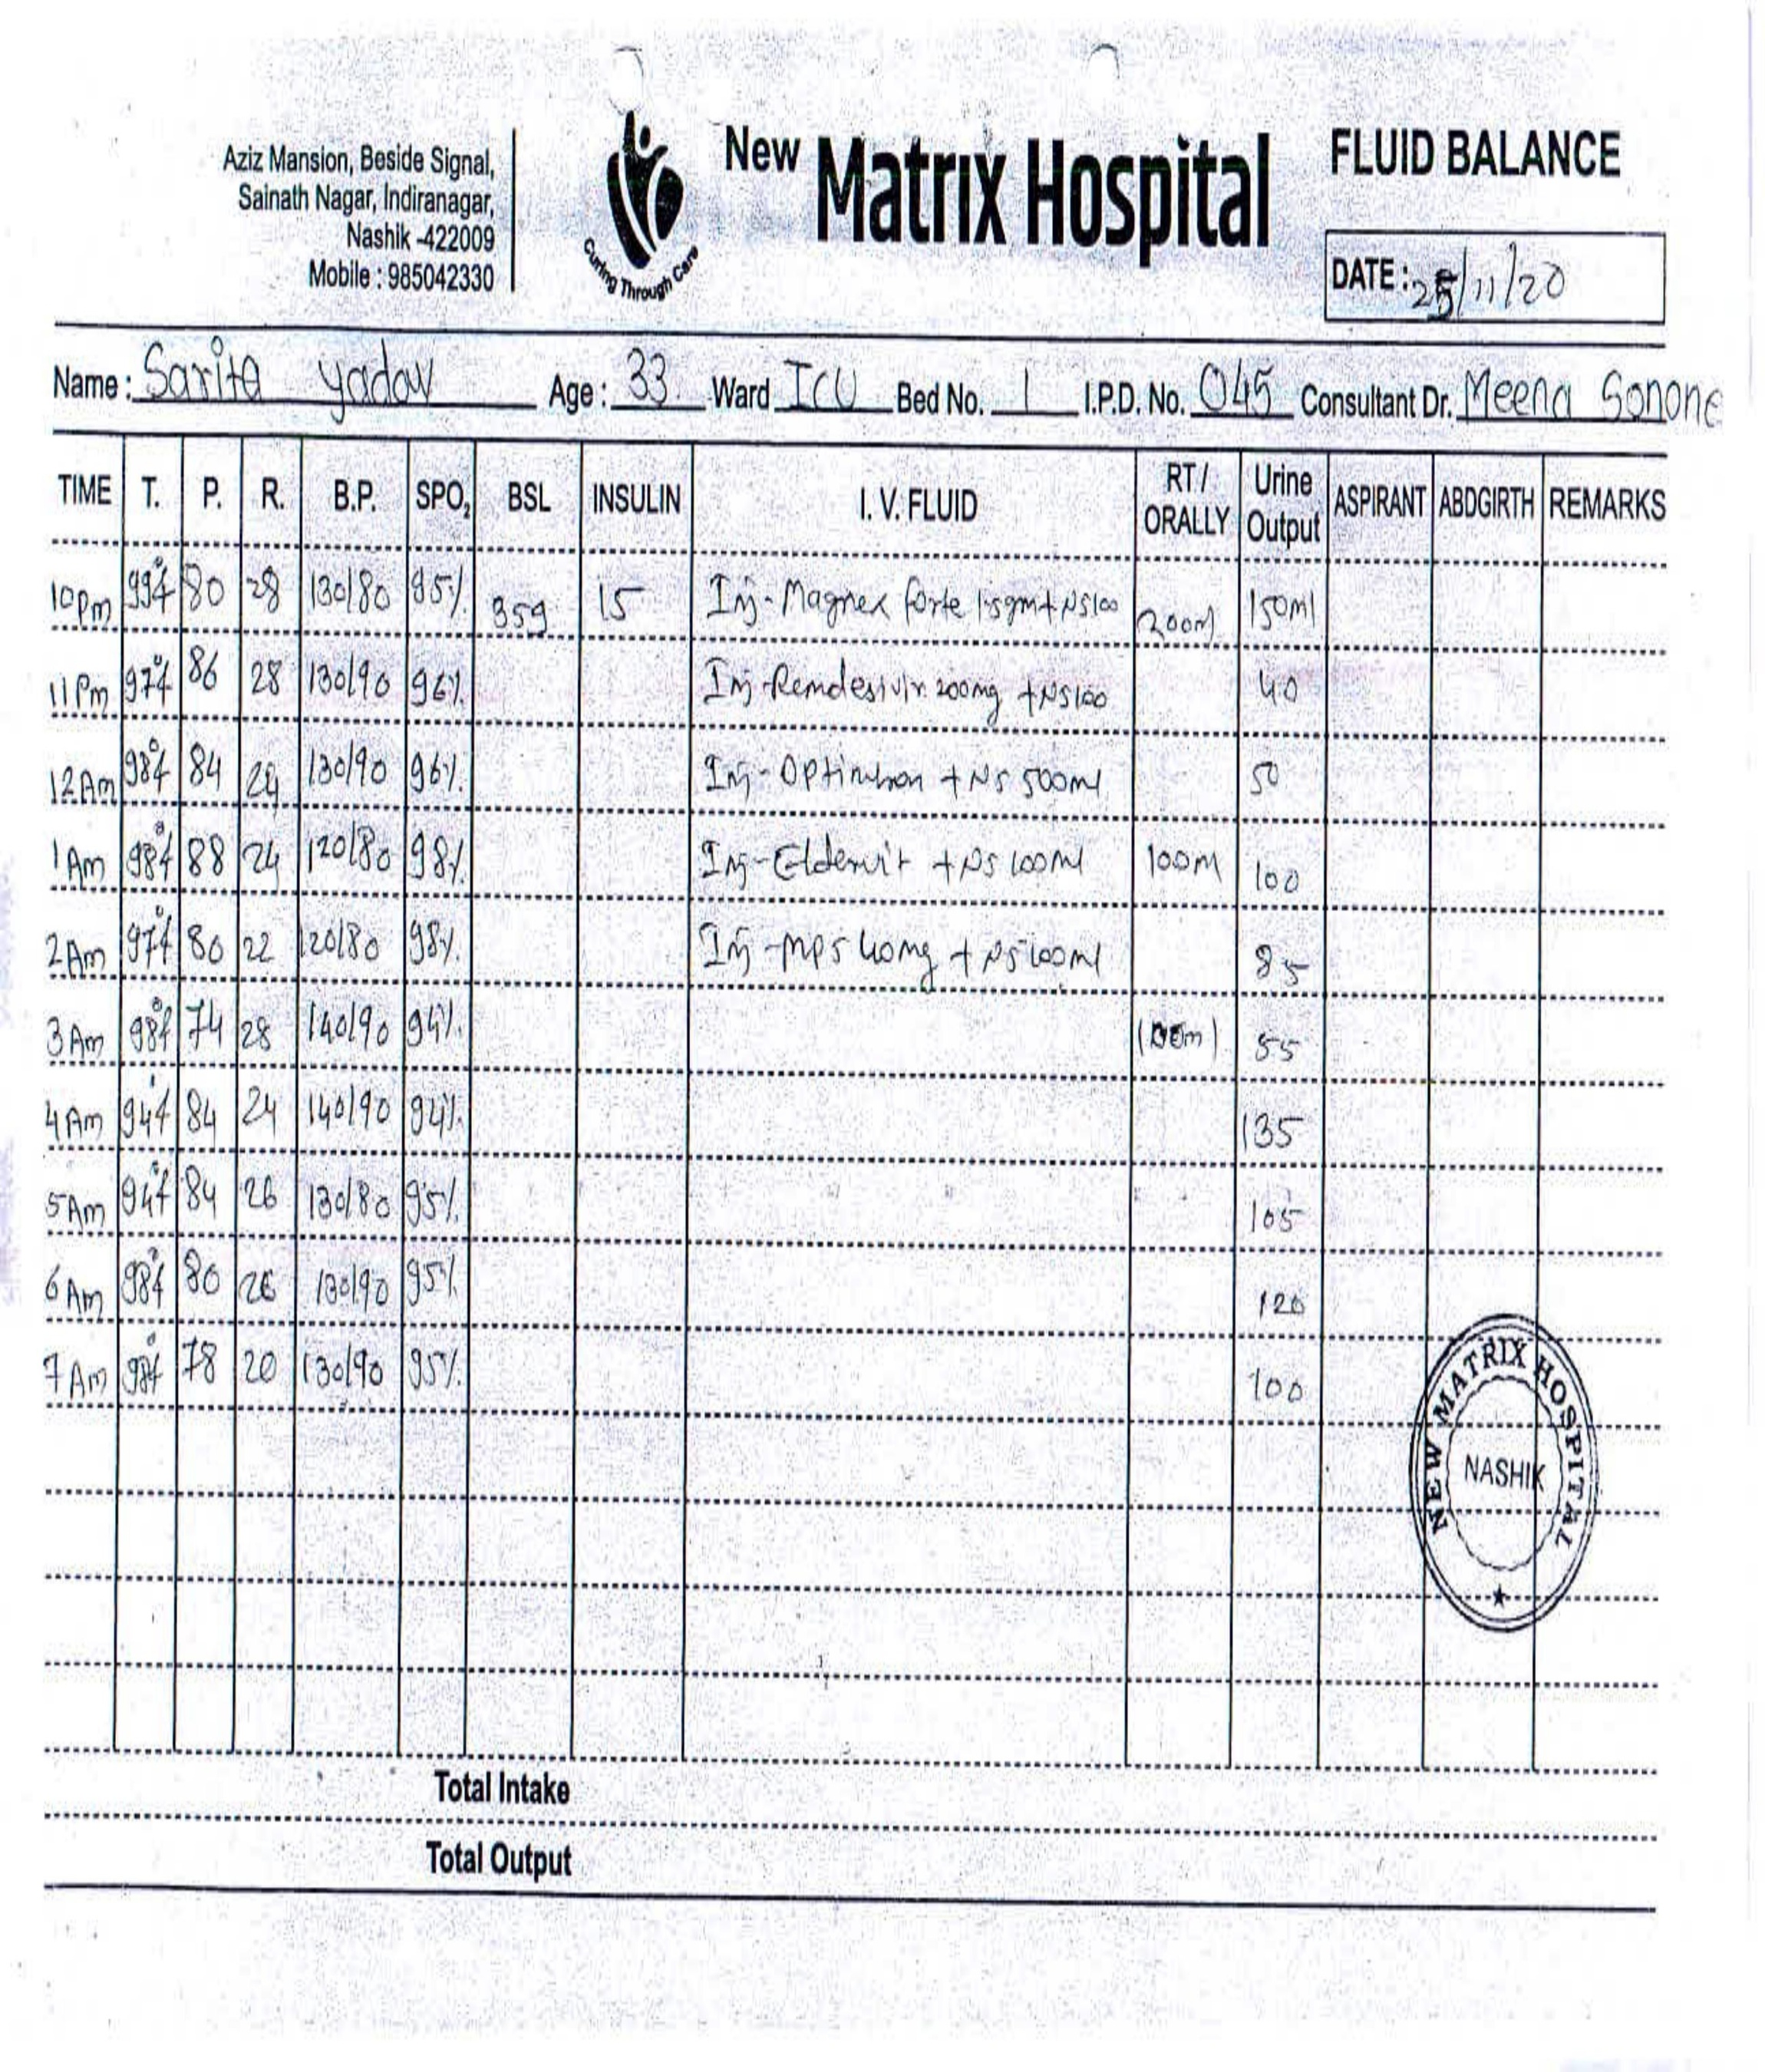 Aziz Mansion, Beside Signal,
Sainath Nagar, Indiranagar,
Nashik -422009
Mobile : 985042330
Curing Through Care
New Matrix Hospital
FLUID BALANCE
DATE : 25/11/20
Name : Sarita yadav Age : 33 Ward ICU Bed No. 1 I.P.D. No. 045 Consultant Dr. Meena Sonone
TIME T. P. R. B.P. SPO₂ BSL INSULIN I. V. FLUID RT / ORALLY Urine Output ASPIRANT ABDGIRTH REMARKS
10pm 99°f 80 28 130/80 95% 359 15 Inj-Magnex forte 1.5gm+NS100 200ml 150ml
11Pm 97°f 86 28 130/90 96% Inj-Remdesivir 200mg +NS100 40
12Am 98°f 84 24 130/90 96% Inj- + NS 500ml 50
1Am 98°f 88 24 120/80 98% Inj-Eldervit +NS 100ml 100ml 100
2Am 97°f 80 22 120/80 98% Inj-MPS 40mg + NS 100ml 85
3Am 98°f 74 28 140/90 94% 55
4Am 94°f 84 24 140/90 94% 135
5Am 94°f 84 26 130/80 95% 105
6Am 98°f 80 26 130/90 95% 120
7Am 98°f 78 20 130/90 95% 100
NEW MATRIX HOSPITAL
NASHIK
Total Intake
Total Output